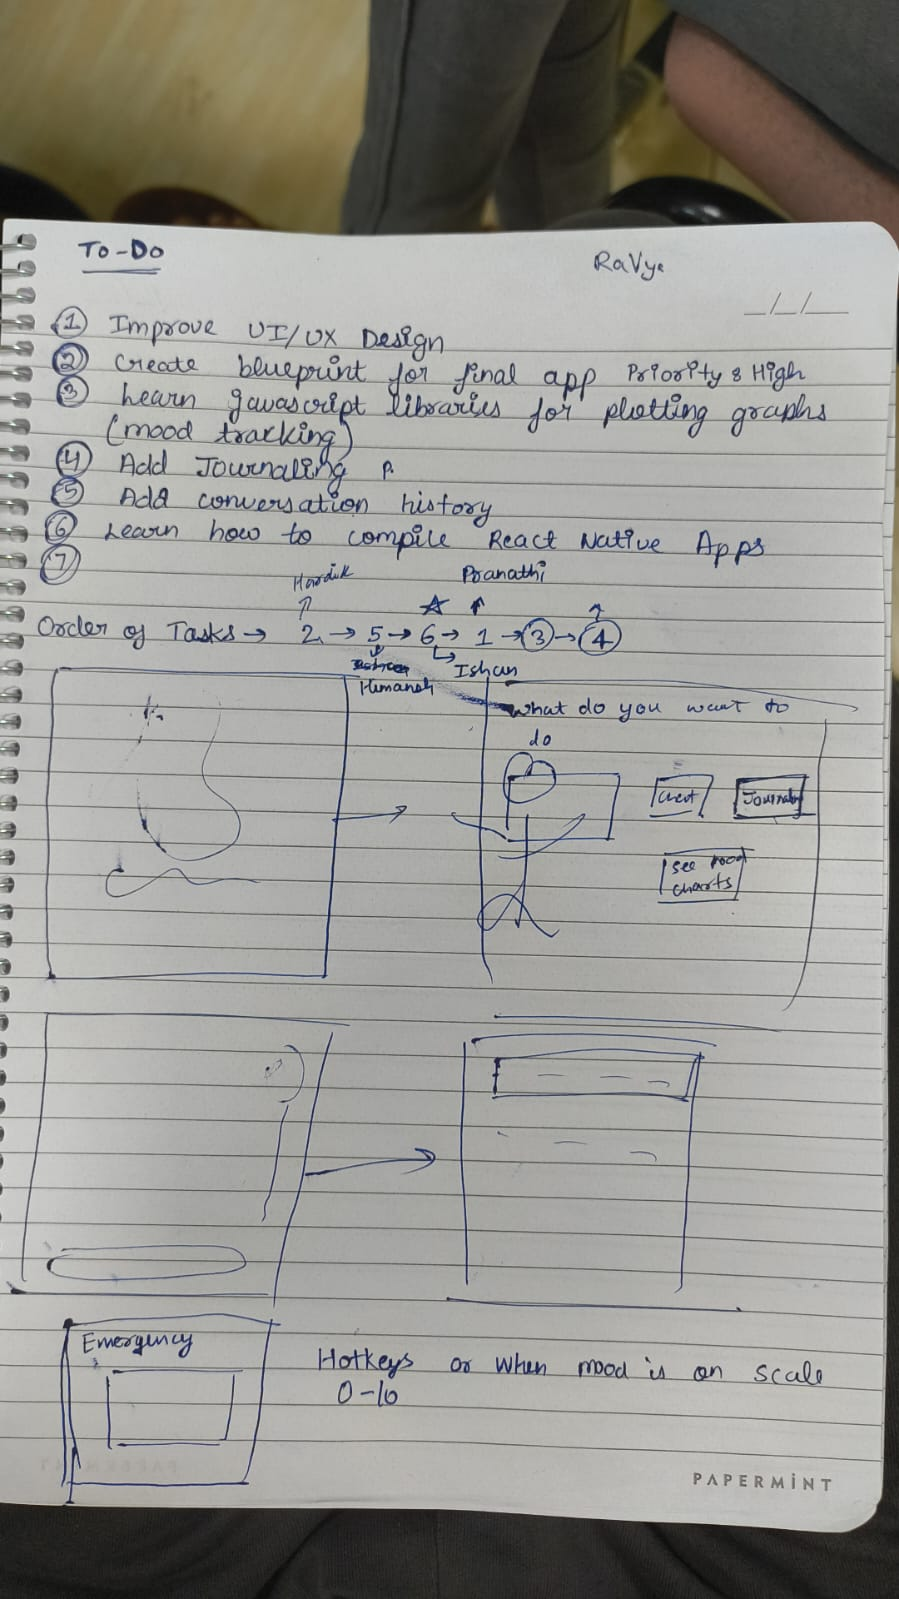 To-Do
RaVye
_/_/_
① Improve UI/UX Design
② Create blueprint for final app Priority : High
③ Learn Javascript libraries for plotting graphs
(mood tracking)
④ Add Journaling P.
⑤ Add conversation history
⑥ Learn how to compile React Native Apps
⑦
Hardik Pranathi
Order of Tasks → 2 → 5 → 6 → 1 → ③ → ④
Ishan
Himansh
What do you want to
do
Journaling
see mood
charts
Emergency
Hotkeys or when mood is on scale
0-10
PAPERMINT